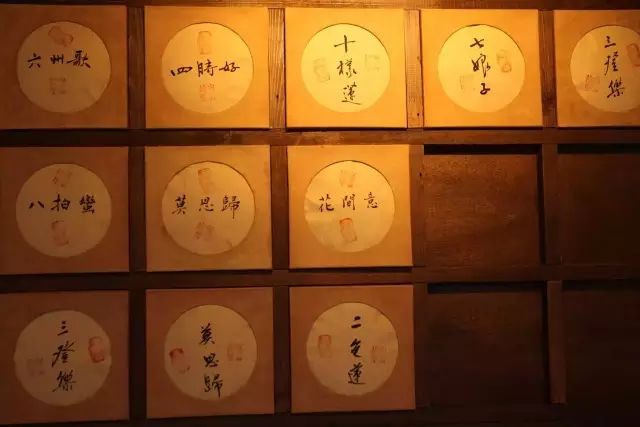 六州歌
四時好
十樣蓮
七娘子
三登樂
八拍蠻
莫思歸
花間意
三登樂
莫思歸
二色蓮